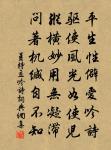 平生性僻愛吟詩
驅使風光如使兒
縱橫妙用無凝滯
問著機緘自不知
夏詩立吟詩詞典網集